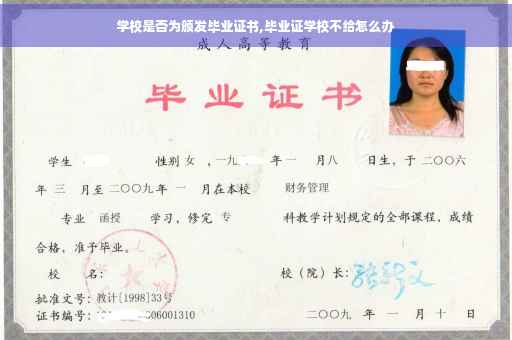 学校是否为颁发毕业证书,毕业证学校不给怎么办
成人高等教育
毕业证书
学生 性别 女 ,一九 年一 月八 日生,于二〇〇六
年 三 月至二〇〇九年 一 月在本校 财务管理
专业 函授 学习,修完 专 科教学计划规定的全部课程,成绩
合格,准予毕业。
校 名: 校(院)长:
批准文号:教计[1998]33号
证书编号: 06001310 二〇〇九 年 一 月 十 日